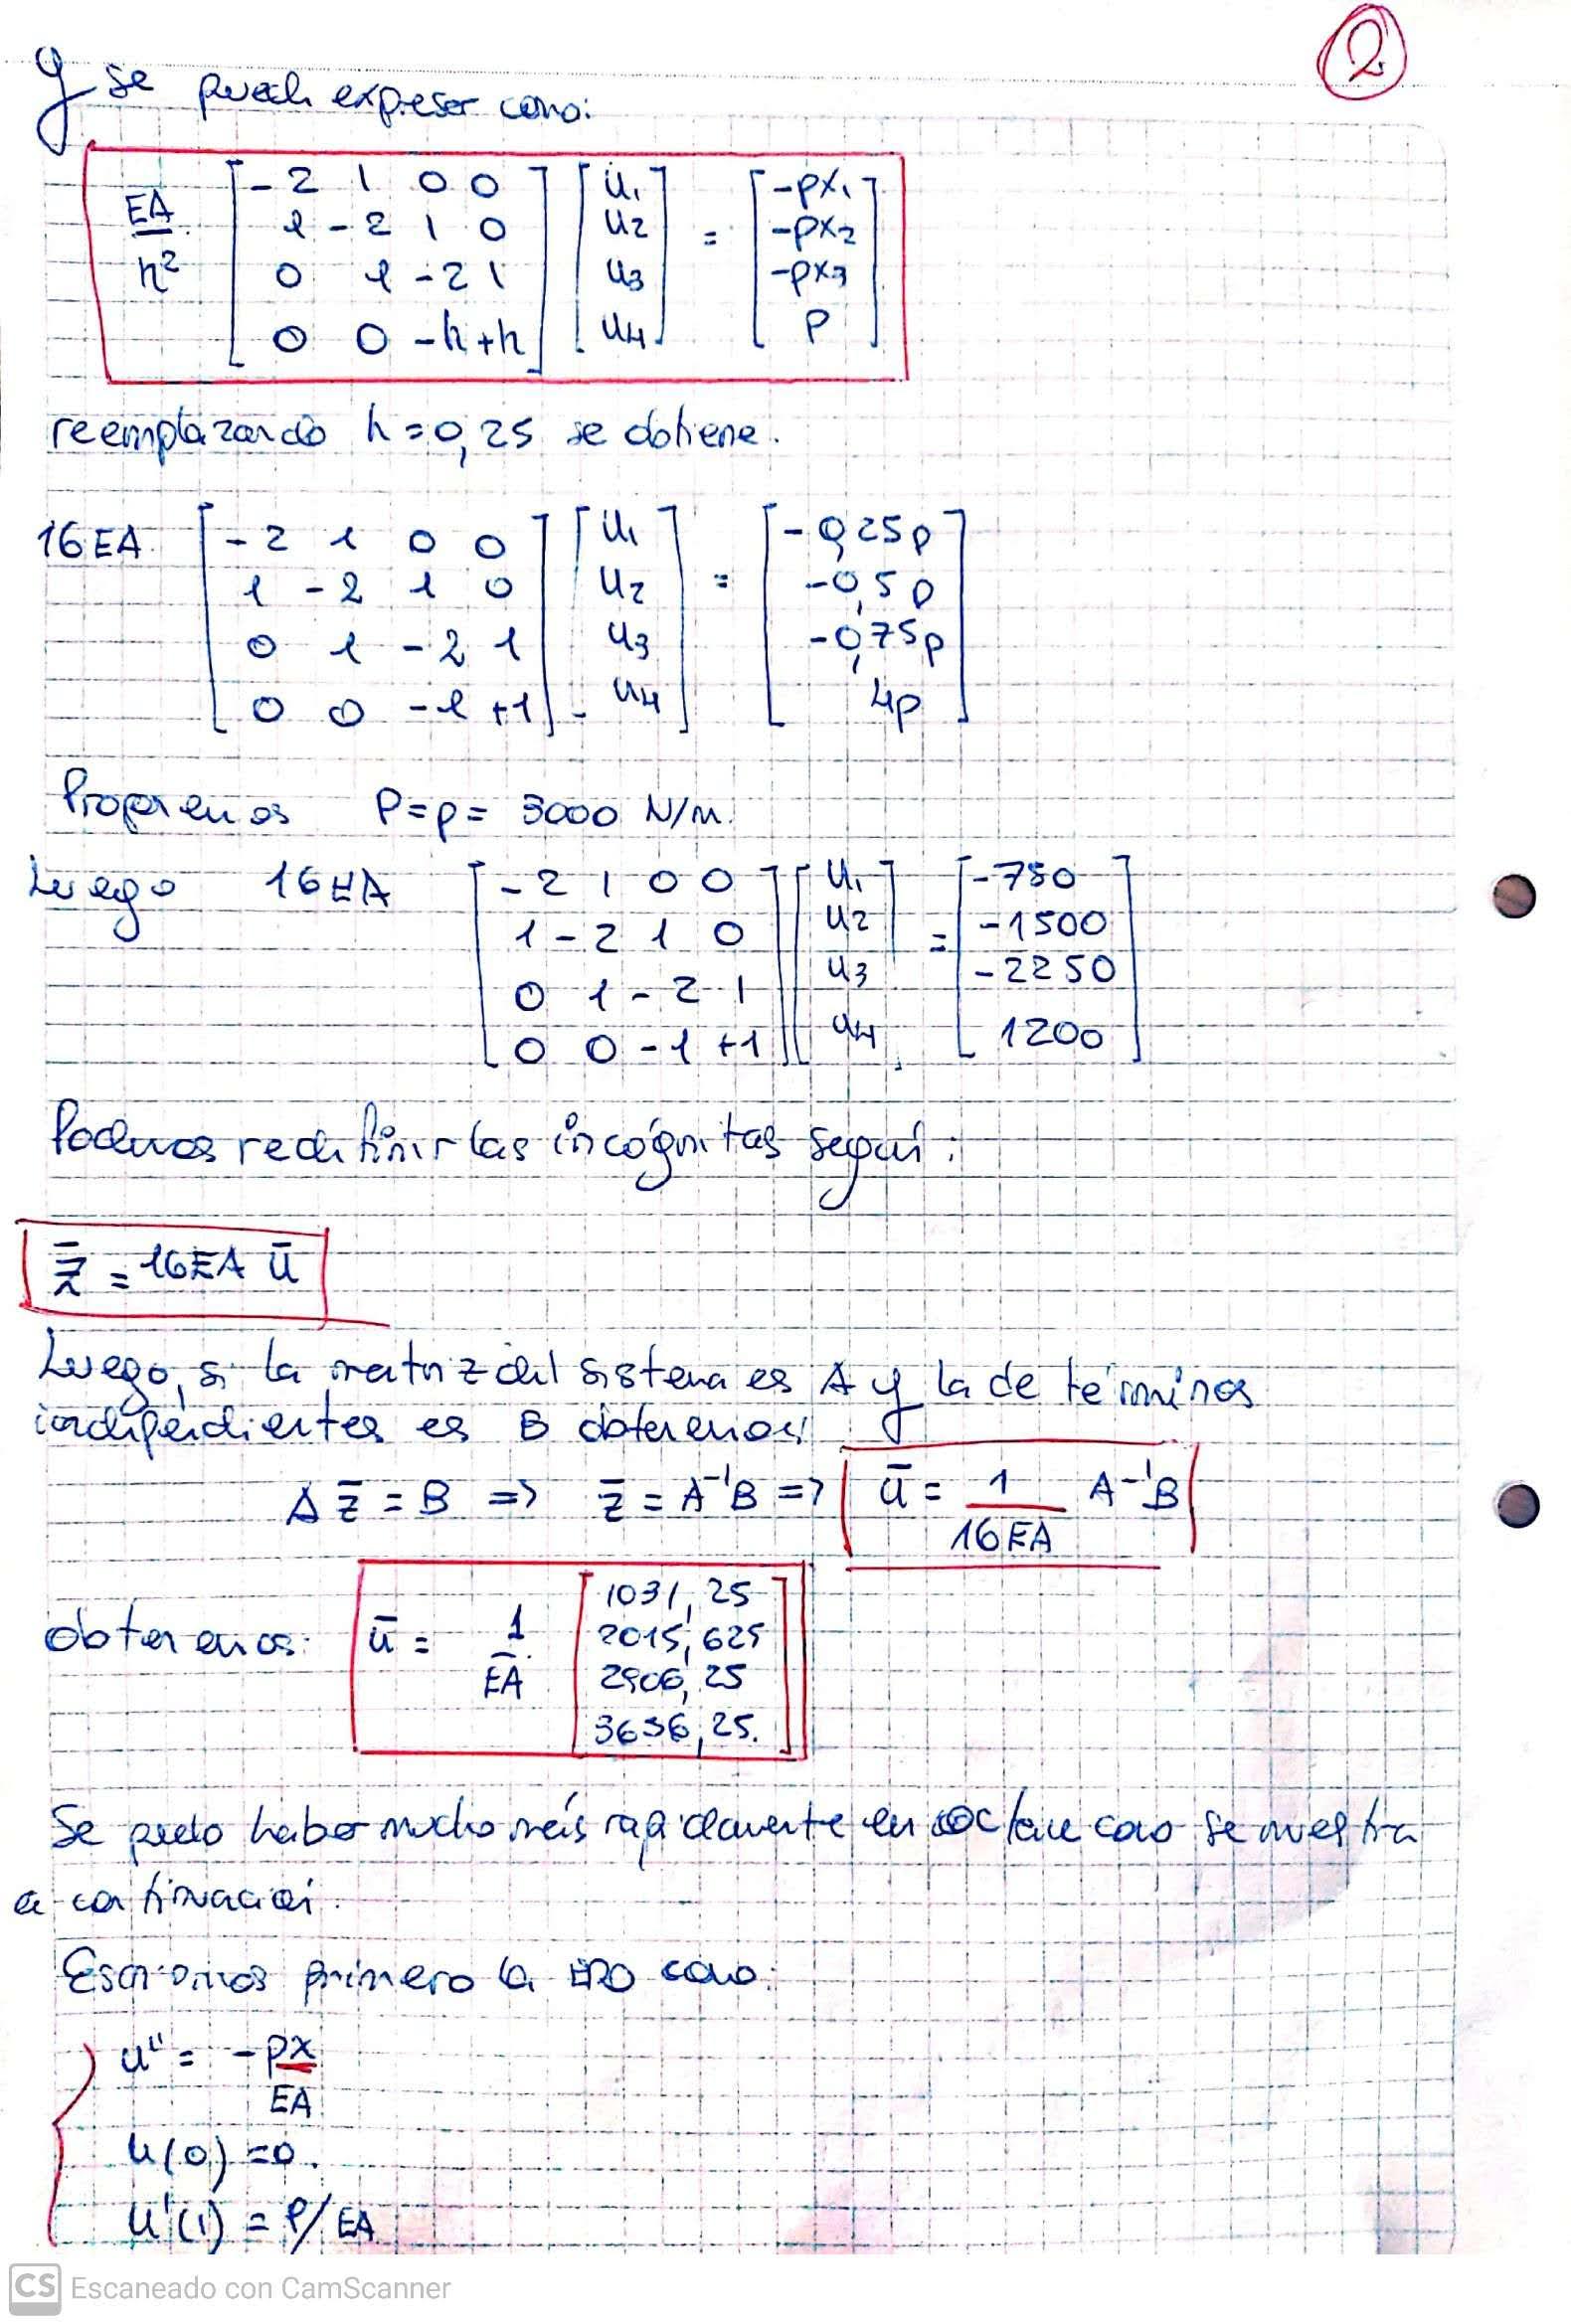 2.
y se puede expresar como:
EA/h² [-2 1 0 0; 1 -2 1 0; 0 1 -2 1; 0 0 -h +h] [u₁; u₂; u₃; u₄] = [-px₁; -px₂; -px₃; P]
reemplazando h=0,25 se obtiene.
16EA [-2 1 0 0; 1 -2 1 0; 0 1 -2 1; 0 0 -1 +1] [u₁; u₂; u₃; u₄] = [-0,25p; -0,5p; -0,75p; 4p]
Proponemos P=p= 3000 N/m.
Luego 16EA [-2 1 0 0; 1 -2 1 0; 0 1 -2 1; 0 0 -1 +1] [u₁; u₂; u₃; u₄] = [-750; -1500; -2250; 1200]
Podemos redefinir las incógnitas según:
z̄ = 16EA ū
Luego, si la matriz del sistema es A y la de términos
independientes es B obtenemos:
A z̄ = B => z̄ = A⁻¹B => ū = 1/16EA A⁻¹B
obtenemos: ū = 1/EA [1031,25; 2015,625; 2906,25; 3656,25.]
Se puede haber mucho más rápidamente en Octave como se muestra
a continuación.
Escribimos primero la EDO como:
u'' = -px/EA
u(0) =0.
u'(1) = P/EA
CS Escaneado con CamScanner